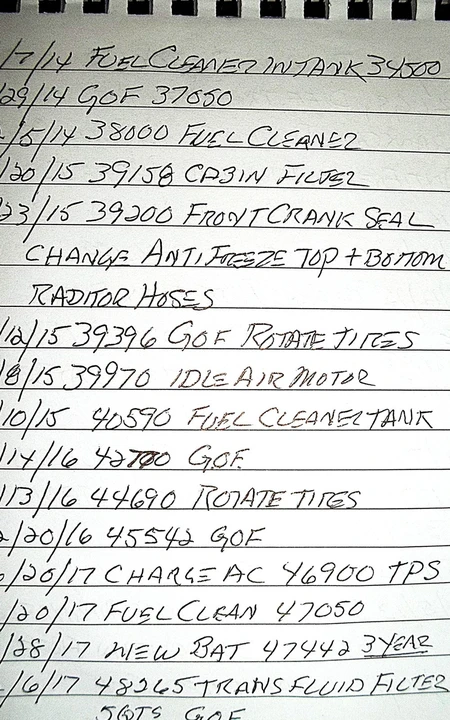 /7/14 FUEL CLEANER IN TANK 34500
29/14 GOF 37050
/5/14 38000 FUEL CLEANER
/20/15 39158 CABIN FILTER
23/15 39200 FRONT CRANK SEAL
CHANGE ANTIFREEZE TOP + BOTTOM
RADITOR HOSES
/12/15 39396 GOF ROTATE TIRES
/8/15 39970 IDLE AIR MOTOR
/10/15 40590 FUEL CLEANER TANK
/14/16 42700 GOF
/13/16 44690 ROTATE TIRES
2/20/16 45542 GOF
/20/17 CHARGE AC 46900 TPS
/20/17 FUEL CLEAN 47050
/28/17 NEW BAT 47442 3 YEAR
/6/17 48265 TRANS FLUID FILTER
5QTS GOF